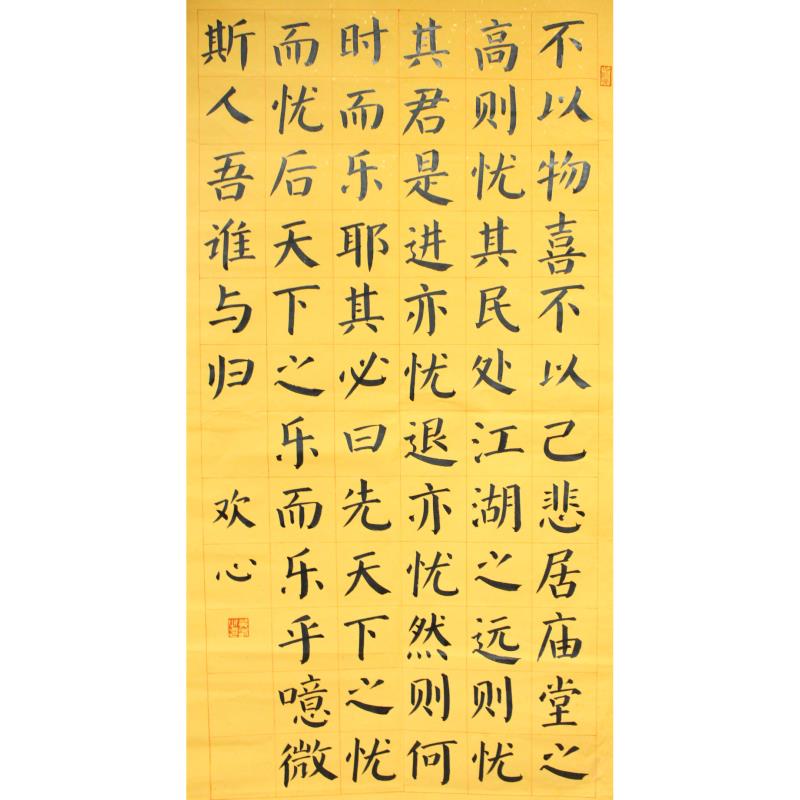 不以物喜不以己悲居庙堂之
高则忧其民处江湖之远则忧
其君是进亦忧退亦忧然则何
时而乐耶其必曰先天下之忧
而忧后天下之乐而乐乎噫微
斯人吾谁与归
欢心